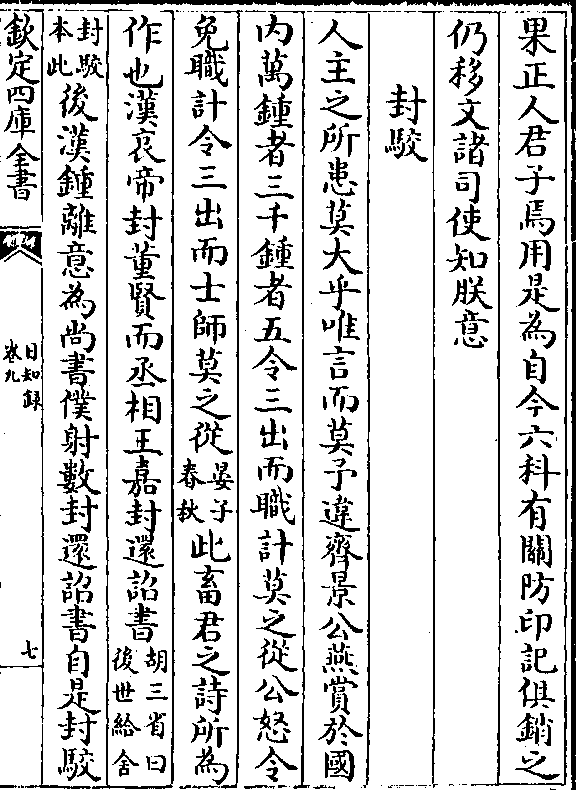 果正人君子焉用是為自今六科有關防印記俱銷之
仍移文諸司使知朕意
封駁
人主之所患莫大乎唯言而莫予違齊景公燕賞於國
内萬鍾者三千鍾者五令三出而職計莫之從公怒令
免職計令三出而士師莫之從晏子春秋此畜君之詩所為
作也漢哀帝封董賢而丞相王嘉封還詔書胡三省曰後世給舍
封駁本此後漢鍾離意為尚書僕射數封還詔書自是封駁
欽定四庫全書
日知録
卷九
七